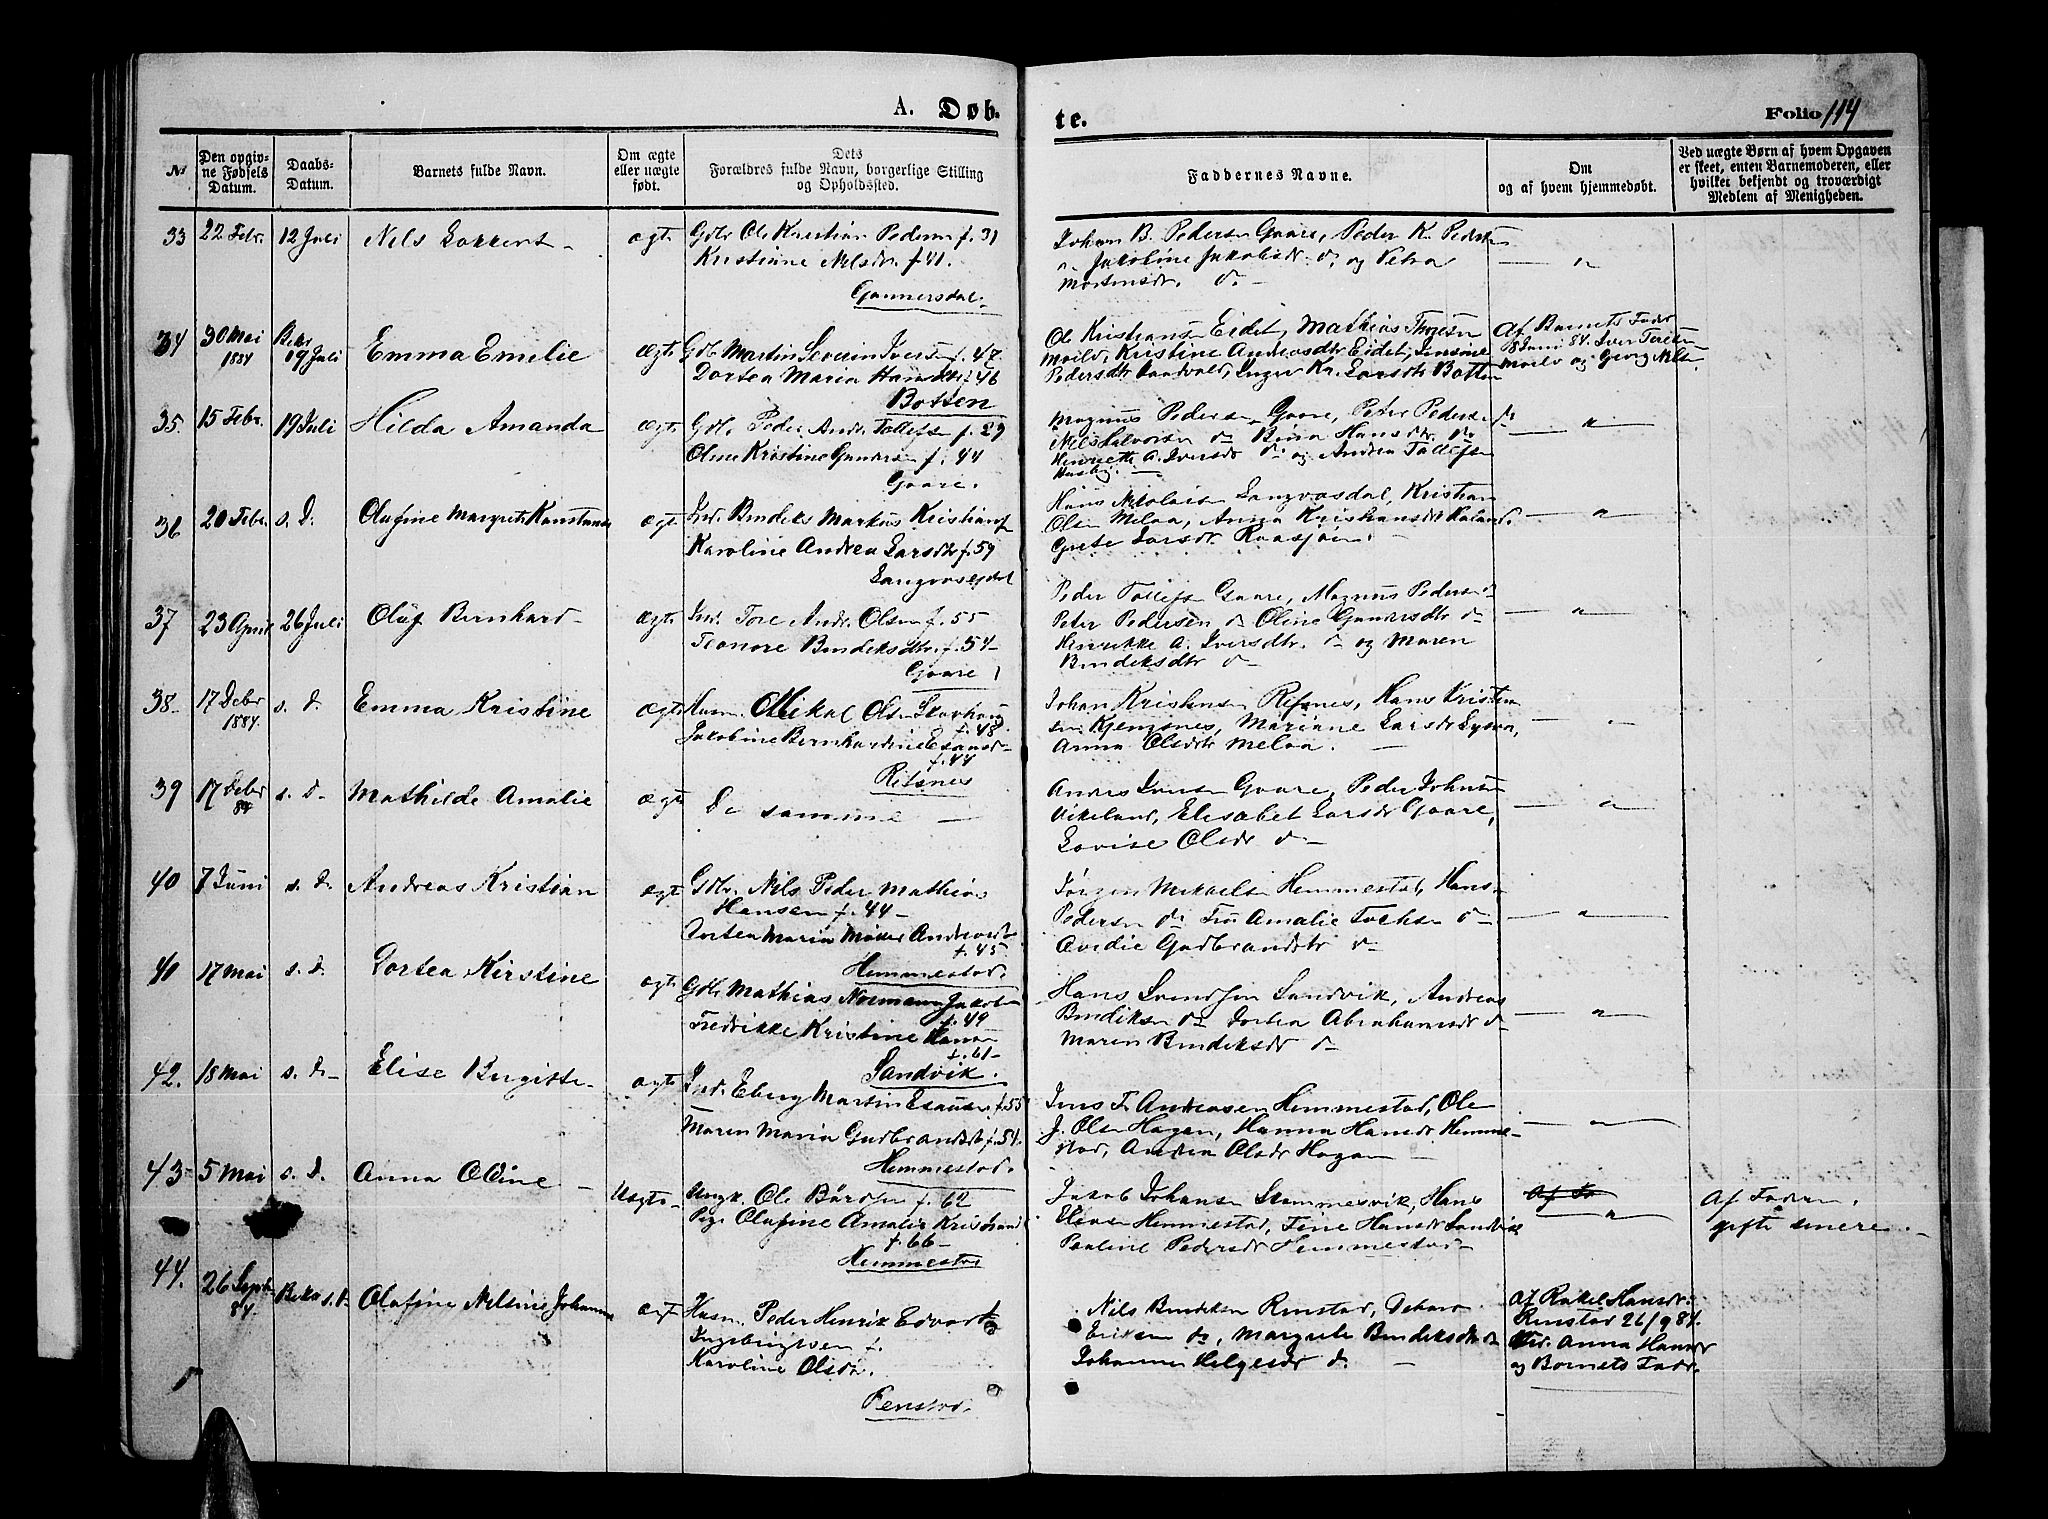 A. Døb-
te.
Folio 114
No
Den opgiv-
ne Fødsels
Datum.
Daabs-
Datum.
Barnets fulde Navn.
Om ægte
eller uægte
født.
Dets
Forældres fulde Navn, borgerlige Stilling
og Opholdssted.
Faddernes Navne.
Om
og af hvem hjemmedøbt.
Ved uægte Børn af hvem Opgaven
er skeet, enten Barnemoderen, eller
hvilket bekjendt og troværdigt
Medlem af Menigheden.
33 22 Febr. 12 Juli Nils ægt. Gdbr Ole Kristian Pedersen f. 31
Kristinne Nilsdr. f 41.
Gunnersdal.
Johan B. Pedersen Gaare, Peder K. Pedersen
Jakobine Jakobsdr. do og Petra
Mortensdr. do
34 30 Mai 1884 Bekr 19 Juli Emma Emelie ægt. Gdb Martin Severin Iversen f. 47
Dortea Maria Hansdtr. 46
Botten
Ole Kristiansen Eidet, Mathias
Kristine Andreasdtr Eidet, Jensine
Pedersdtr Inger Kr. Larsdtr Botten
Af Barnets Fader
8 Juni 84. Iver
og Georg Nils
35. 15 Febr. 19 Juli Hilda Amanda ægt. Gdb. Peder Andr. Tollefsen f. 29
Oline Kristine f. 44
Gaare.
Magnus Pedersen Gaare, Peter Pedersen do
Nils do Hansdr. do
Henriette A. Iversdr do og Andrea Tollefsen
Husby.
36 20 Febr. s. D. Olufine Margrete Konstance ægt. Ind. Bendiks Markus Kristians
Karoline Andrea Larsdtr f. 59
Langvasdal
Hans Nikolaisen Langvasdal, Kristian
Olsen Melaa, Anna Kristiansdtr
Grete Larsdr.
37 23 April 26 Juli Oluf Bernhard ægt. Ind. Tore Andr. Olsen f. 55
Bendeksdtr. f. 54
Gaare
Peder Tollefsen Gaare, Magnus Pedersen do
Peter Pedersen do Oline Gunersdtr do
Henrikke A. Iversdtr. do og Maren
Bendeksdtr do
38 17 Decbr 1884. s. D. Emma Kristine ægt. Husm. Mikal Olsen
f. 48.
Jakobine Bernhardine Esausd
f. 44
Refsnes
Johan Kristensen Refsnes, Hans Kristen
sen Kjengsnes, Mariane Larsdr
Anna Olsdtr Melaa.
39 17 Decbr 84 s. D. Mathilde Amalie ægt. De samme
Anders Iversen Gaare, Peder Johnsen
Vikeland, Elisabet Larsdr Gaare,
Lovise Olsdr do
40 7 Juni s. D. Andreas Kristian ægt. Gdbr. Nils Peder Mathias
Hansen f. 44
Dortea Maria Møller Andreasdt
f. 45
Hemmestad.
Jørgen Mikaelsen Hemmestad, Hans
Pedersen do Fru Amalie do
Gudbrandsdtr do
41 17 Mai s. D. Dortea Kirstine ægt. Gdbr Mathias Normann Jakobs
f. 49
Fredrikke Kristine
f. 61
Sandvik.
Hans Svendsen Sandvik, Andreas
Bendiksen do Dortea Abrahamsdt do
Maren Bendeksdr do
42. 18 Mai s. D. Elise Birgitte ægt. Ind. Eberg Martin Esausen f. 55
Maren Maria Gudbrandsdt f. 54.
Hemmestad.
Jens T. Andreasen Hemmestad, Ole
J. Olsen Hagen, Hanna Hansdr Hemme-
stad, Andrea Olsdr Hagen
43 5 Mai s. D. Anna Oldine Uægte Ungk. Ole Bårdsen f. 62
Pige Olufine Amalie Kristians
f. 66
Hemmestad
Jakob Johansen Hans
Hemmestad, Tine Hansdr Sandvik
Pauline Pedersdr Hemmestad
Af Fa
Af Faderen.
gifte senere.
44. 26 Septbr 84. Bekr s. D. Olufine Nilsine Johanna ægt Husm. Peder Henrik Edvard
Ingebrigtsen f.
Karoline Olsdr.
Renstad.
Nils Bendiksen Renstad,
Eriksen do, Margrete Bendeksdtr do
Johanna Helgesdr do
Af Rakel Hansdr.
Renstad 26/9 84.
Anna Hansdr
og Barnets Fader